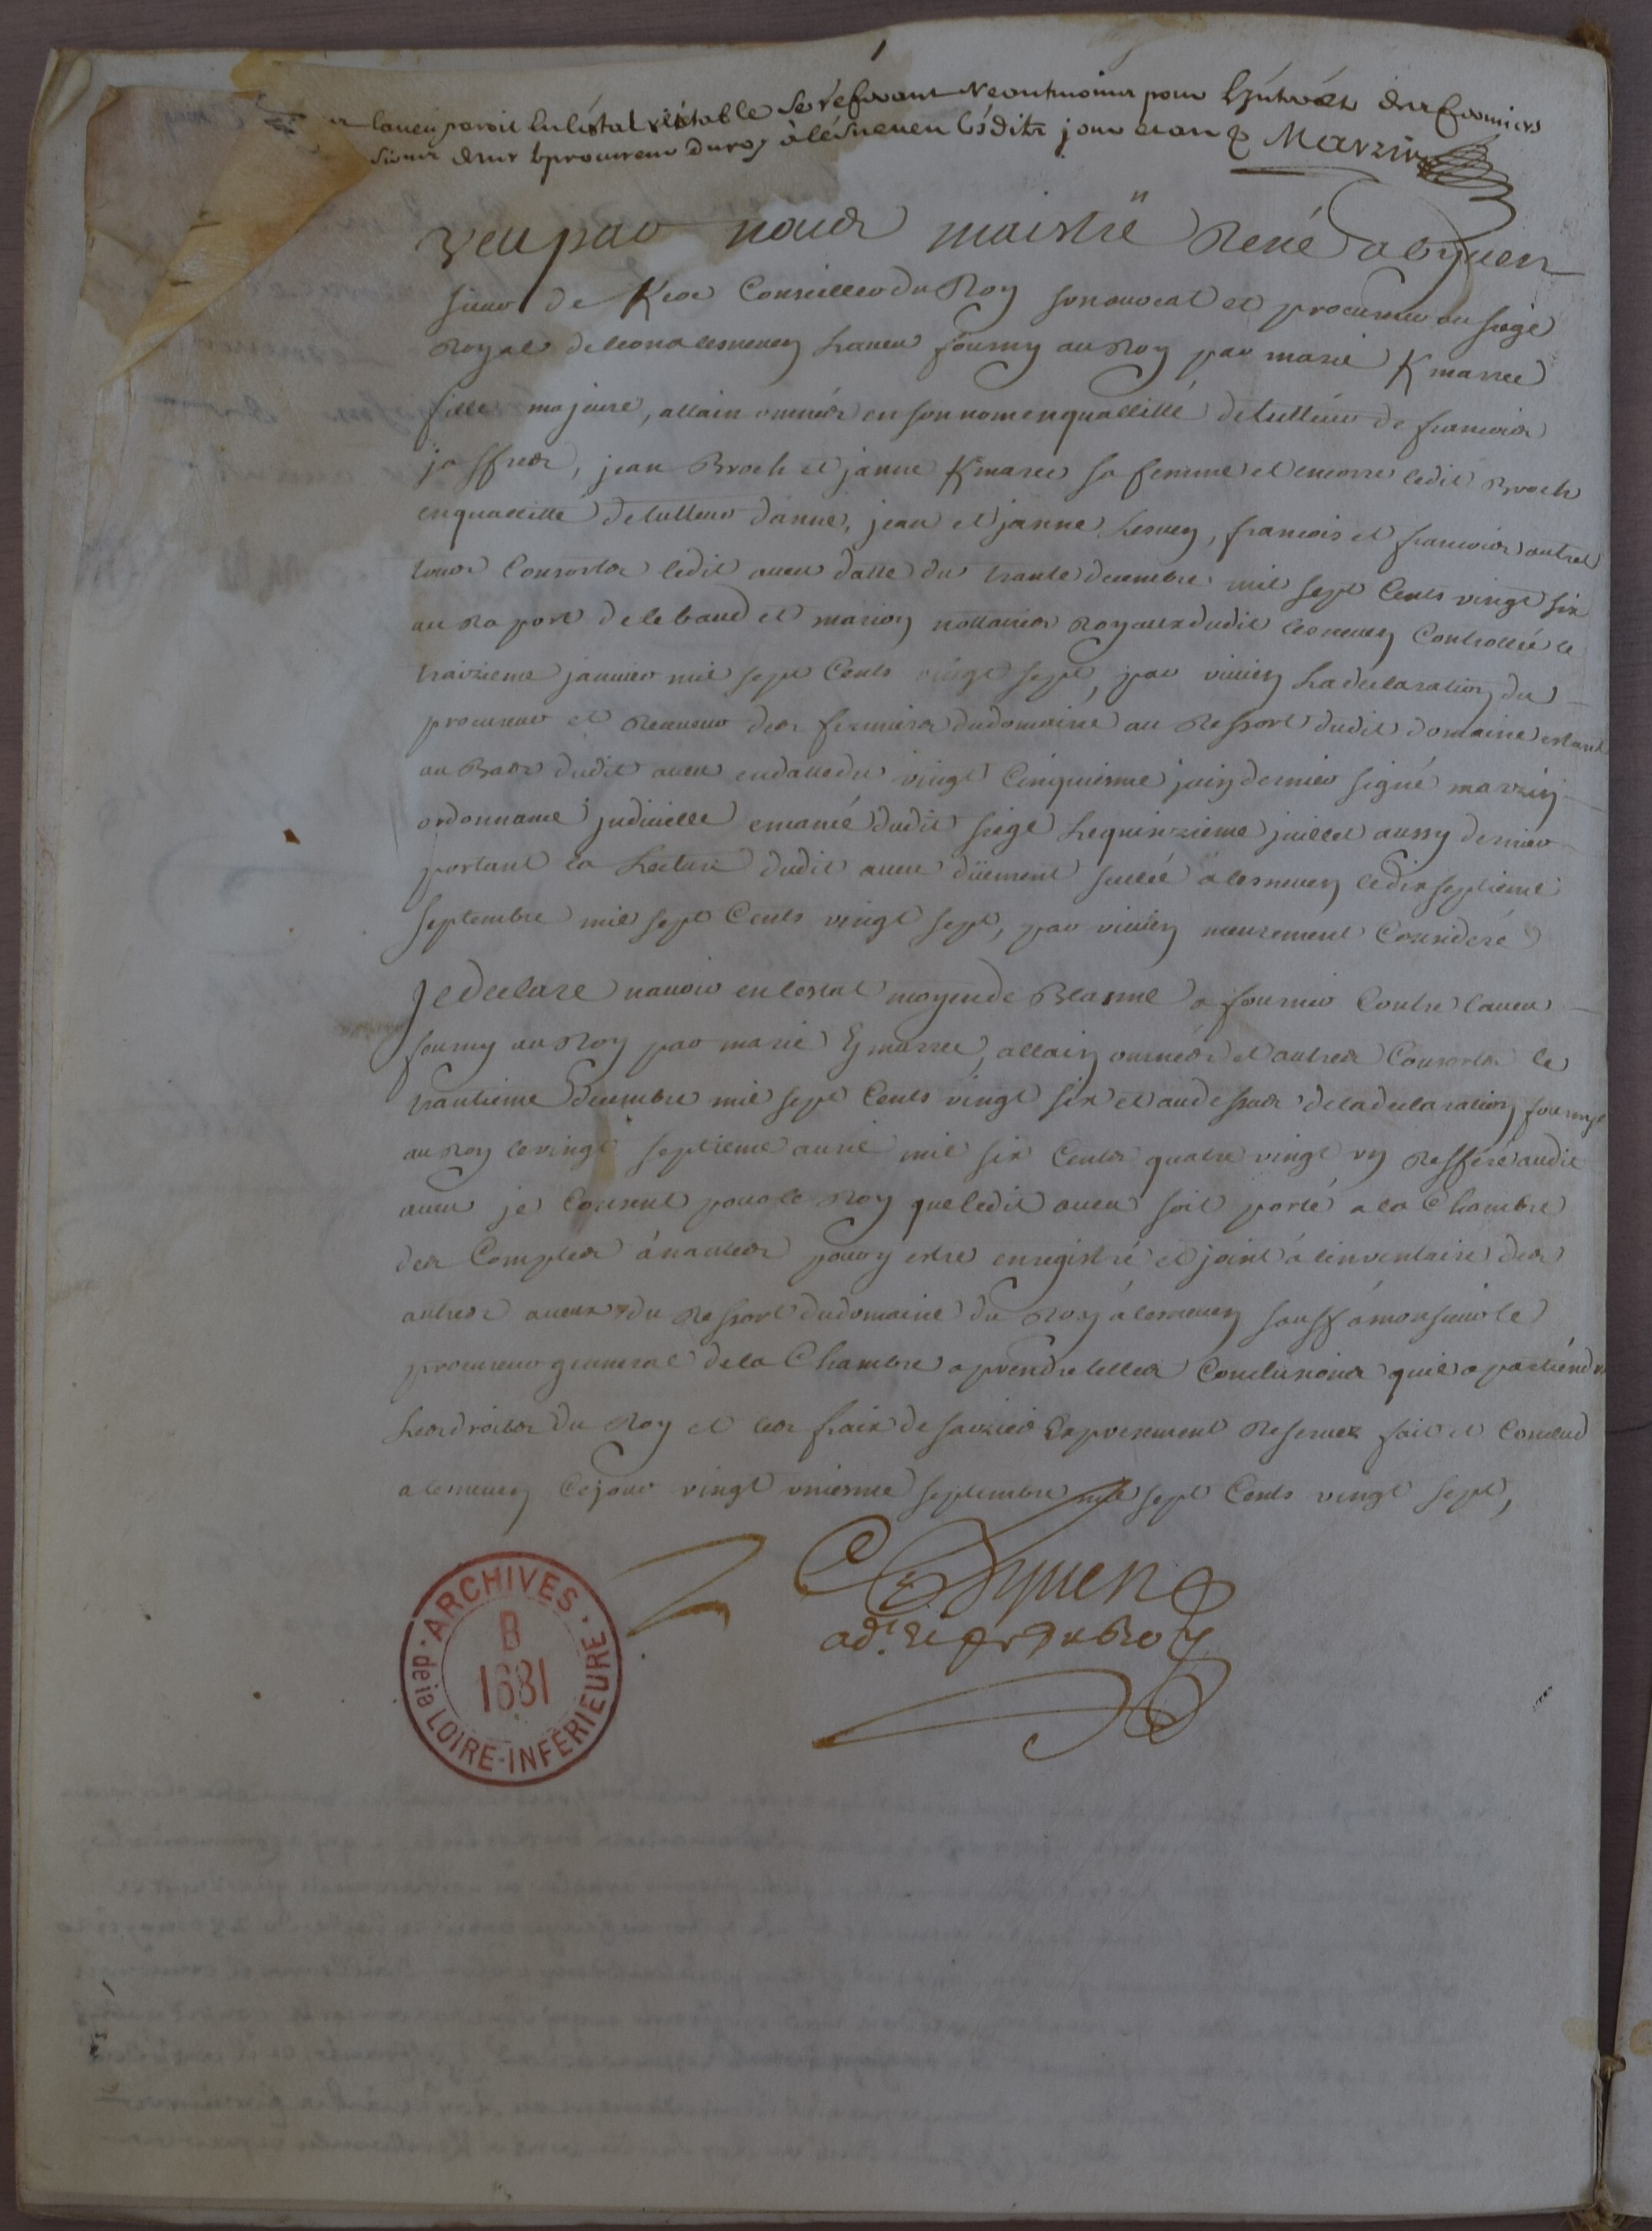 laveu paroit en lestat recétable Se réservant Neantmoins pour Lintérêt des fermiers
sieur le procureur du roy à lésneven lésdits jour et an Marzin
veu par nous maistre René abyven
sieur de Kros Conseiller du Roy son avocat et procureur au siege
Royal de leon a lesneven Laveu fourny au Roy par marie Kmarrec
fille majeure, allain en son nom en quallitté de tutteur de francois
joffres, jean Broch et janne Kmarec sa femme et encorre ledit Broch
en quallitté de tutteur d'anne, jean et janne Lesven, francois et francois autret
tous Consorts ledit aveu datté du trante decembre mil sept Cents vingt six
au Raport de le baud et marion nottaires Royaux dudit lesneven Controllé le
traizieme janvier mil sept Cents vingt sept, par vivien La declaration du
procureur et Receveur des fermiers du domaine au Ressort dudit domaine estant
au Bas dudit aveu en datte du vingt Cinquiesme juin dernier signé marzin
ordonnance judicielle emané dudit siege Le quinzieme juillet aussy dernier
portant la Lecture dudit aveu düement scellé a lesneven le dix septieme
septembre mil sept Cents vingt sept, par vivien meurement Consideré
Je declare n'avoir en l'estat moyen de Blasme a fournir Contre l'aveu
fourny au Roy par marie Kmarrec, allain et autres Consorts le
trantieme decembre mil sept Cents vingt six et au dessus de la declaration fournye
au Roy le vingt septieme avril mil six Cents quatre vingt un Refféré audit
aveu je Consent pour le Roy que ledit aveu soit porté a la Chambre
des Comptes à nantes pour y estre enregistré et joint à l'inventaire des
autres aveux du Ressort du domaine du Roy à lesneven sauff à monsieur le
procureur general de la Chambre a prendre telles Conclusions qu'il apartiendra
Les droits du Roy et les fraix de saizies Expressement Reservez fait et Conclud
a lesneven Ce jour vingt uniesme septembre mil sept Cents vingt sept,
abyven
adt. et pr du Roy
ARCHIVES
de la LOIRE-INFERIEURE
B
1681